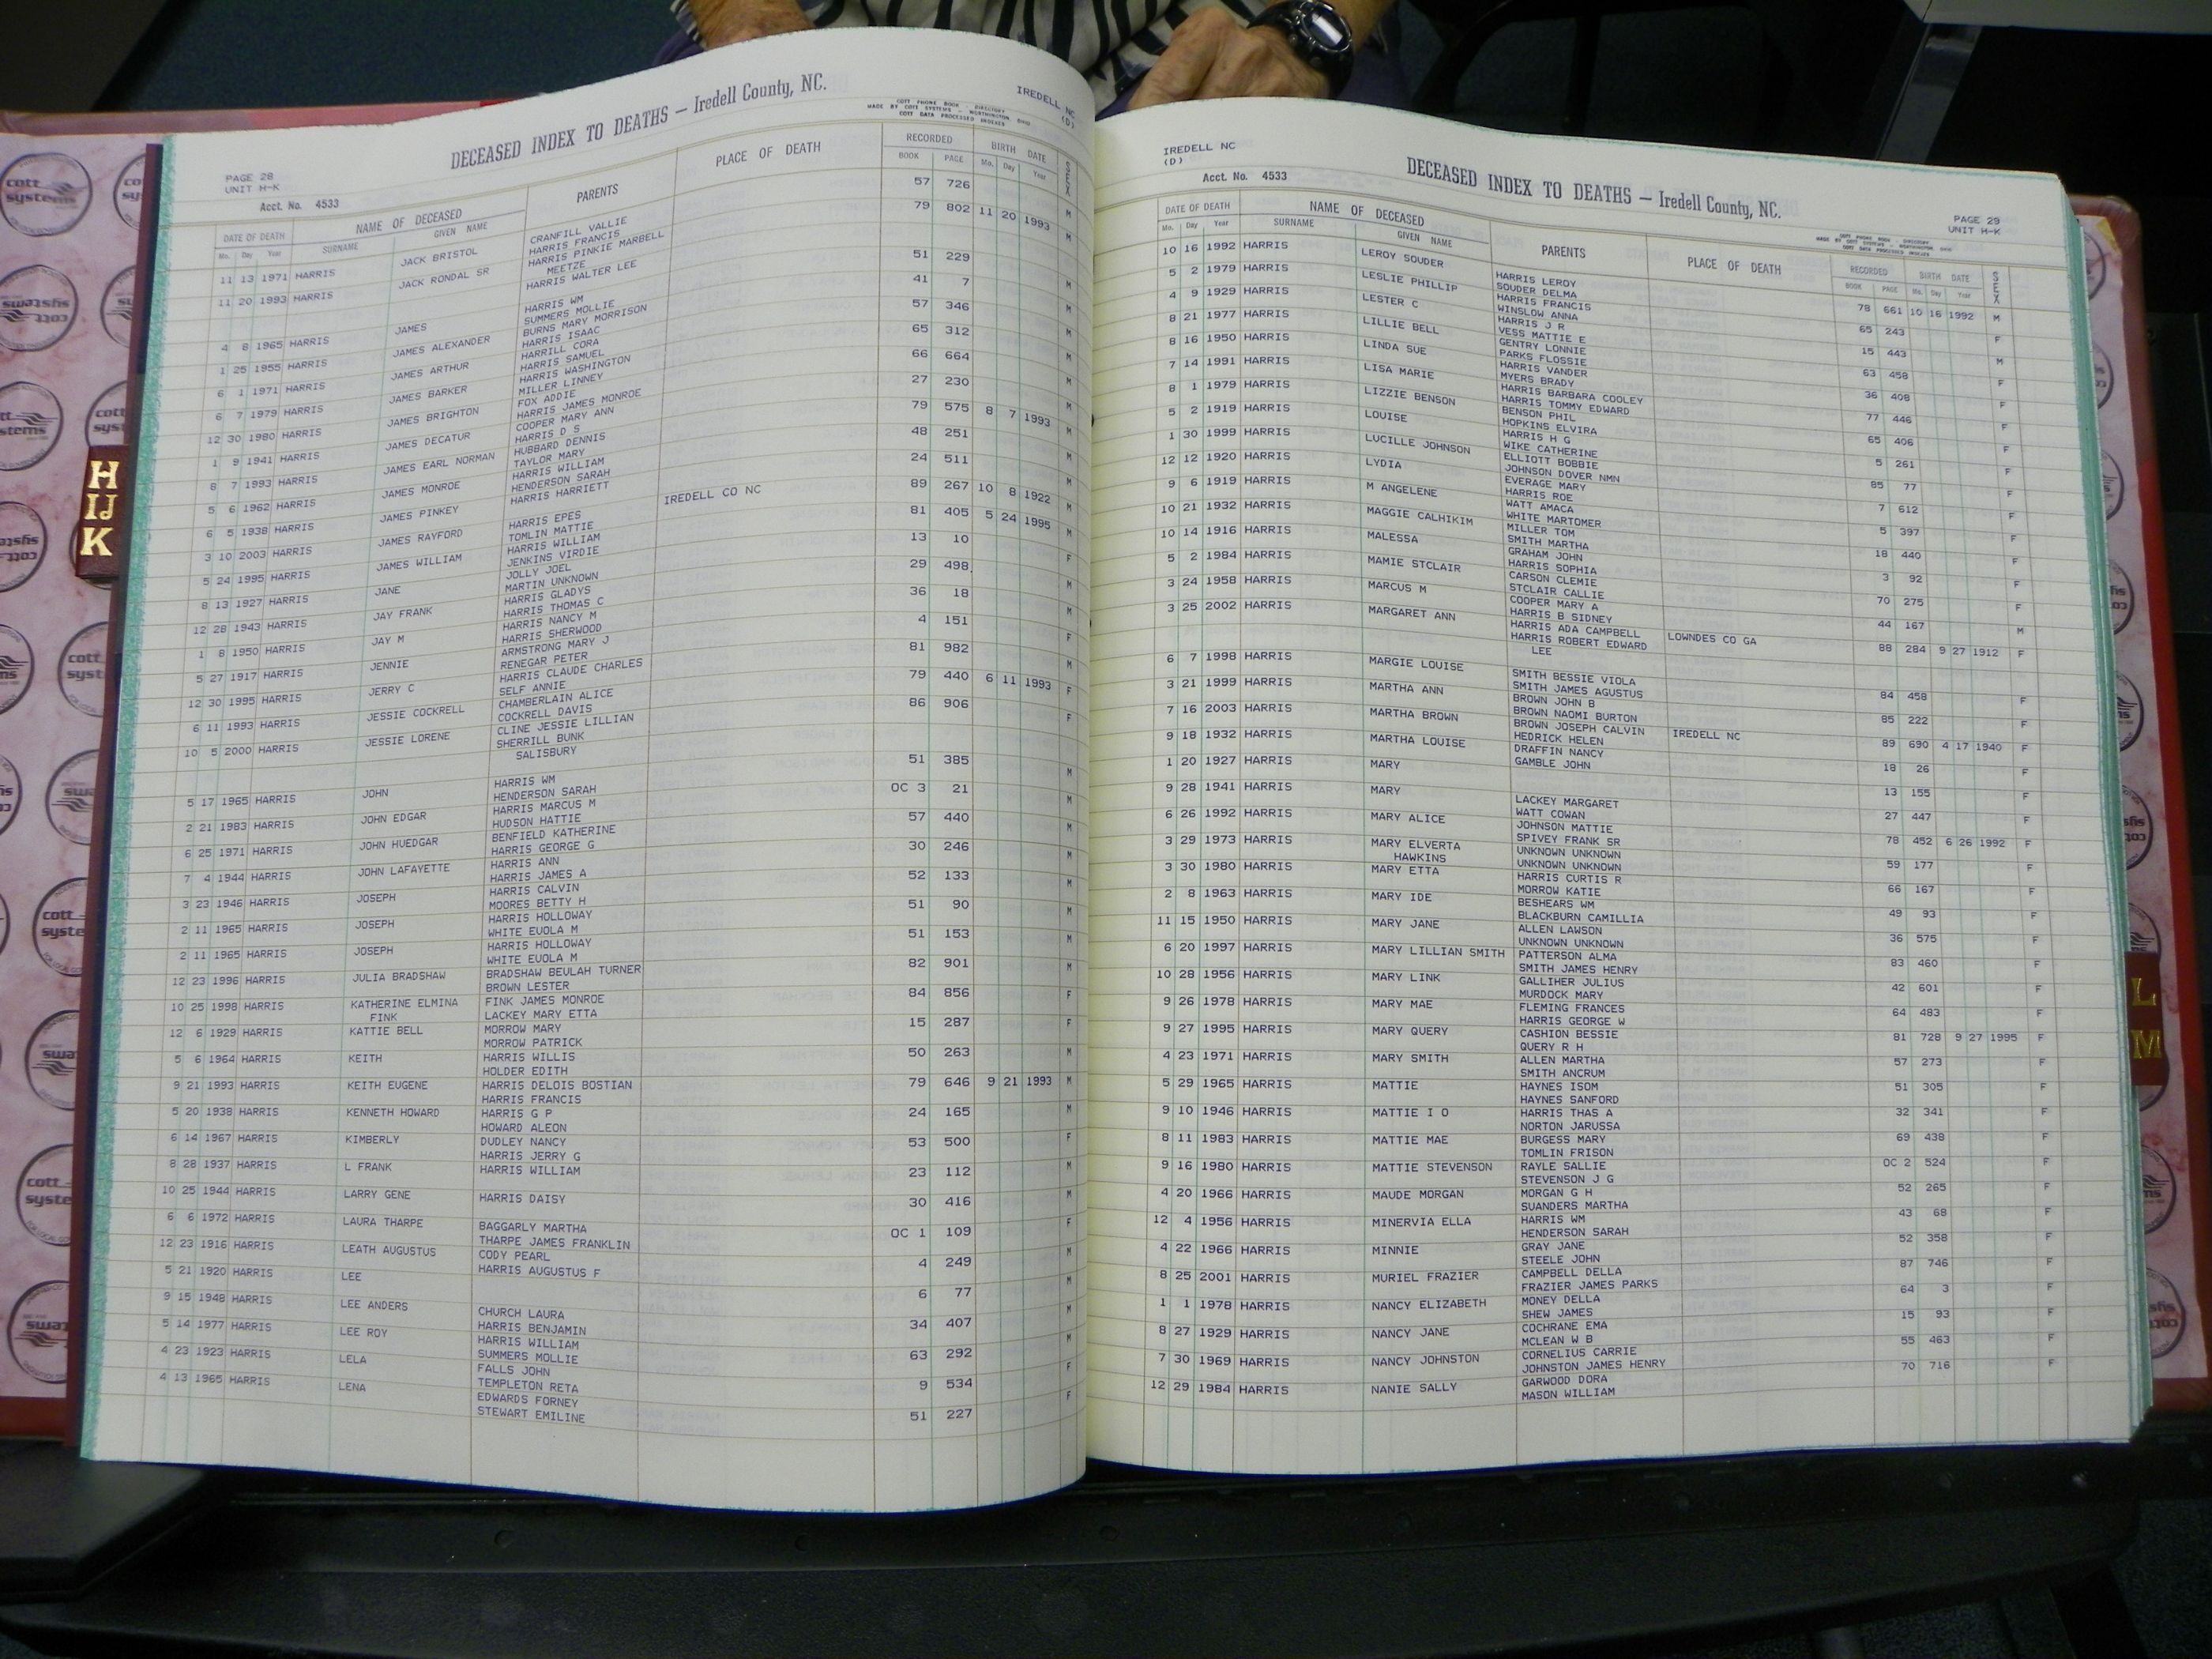 DECEASED INDEX TO DEATHS — Iredell County, NC.
IREDELL NC
(D)
COTT PHONE BOOK - DIRECTORY
MADE BY COTT SYSTEMS - WORTHINGTON, OHIO
COTT DATA PROCESSED INDEXES
PAGE 28
UNIT H-K
Acct. No. 4533
DATE OF DEATH NAME OF DECEASED PARENTS PLACE OF DEATH RECORDED BIRTH DATE SEX
Mo. Day Year SURNAME GIVEN NAME BOOK PAGE Mo. Day Year
11 13 1971 HARRIS JACK BRISTOL CRANFILL VALLIE 57 726 M
HARRIS FRANCIS
11 20 1993 HARRIS JACK RONDAL SR HARRIS PINKIE MARBELL 79 802 11 20 1993 M
MEETZE
HARRIS WALTER LEE
4 8 1965 HARRIS JAMES HARRIS WM 51 229 M
SUMMERS MOLLIE
1 25 1955 HARRIS JAMES ALEXANDER BURNS MARY MORRISON 41 7 M
HARRIS ISAAC
6 1 1971 HARRIS JAMES ARTHUR HARRILL CORA 57 346 M
HARRIS SAMUEL
6 7 1979 HARRIS JAMES BARKER HARRIS WASHINGTON 65 312 M
MILLER LINNEY
12 30 1980 HARRIS JAMES BRIGHTON FOX ADDIE 66 664 M
HARRIS JAMES MONROE
1 9 1941 HARRIS JAMES DECATUR COOPER MARY ANN 27 230 M
HARRIS D S
8 7 1993 HARRIS JAMES EARL NORMAN HUBBARD DENNIS 79 575 8 7 1993 M
TAYLOR MARY
5 6 1962 HARRIS JAMES MONROE HARRIS WILLIAM 48 251 M
HENDERSON SARAH
6 5 1938 HARRIS JAMES PINKEY HARRIS HARRIETT 24 511 M
3 10 2003 HARRIS JAMES RAYFORD HARRIS EPES IREDELL CO NC 89 267 10 8 1922 M
TOMLIN MATTIE
5 24 1995 HARRIS JAMES WILLIAM HARRIS WILLIAM 81 405 5 24 1995 M
JENKINS VIRDIE
8 13 1927 HARRIS JANE JOLLY JOEL 13 10 F
MARTIN UNKNOWN
12 28 1943 HARRIS JAY FRANK HARRIS GLADYS 29 498 M
HARRIS THOMAS C
1 8 1950 HARRIS JAY M HARRIS NANCY M 36 18 M
HARRIS SHERWOOD
5 27 1917 HARRIS JENNIE ARMSTRONG MARY J 4 151 F
RENEGAR PETER
12 30 1995 HARRIS JERRY C HARRIS CLAUDE CHARLES 81 982 M
SELF ANNIE
6 11 1993 HARRIS JESSIE COCKRELL CHAMBERLAIN ALICE 79 440 6 11 1993 F
COCKRELL DAVIS
10 5 2000 HARRIS JESSIE LORENE CLINE JESSIE LILLIAN 86 906 F
SHERRILL BUNK
SALISBURY
5 17 1965 HARRIS JOHN HARRIS WM 51 385 M
HENDERSON SARAH
2 21 1983 HARRIS JOHN EDGAR HARRIS MARCUS M OC 3 21 M
HUDSON HATTIE
6 25 1971 HARRIS JOHN HUEDGAR BENFIELD KATHERINE 57 440 M
HARRIS GEORGE G
7 4 1944 HARRIS JOHN LAFAYETTE HARRIS ANN 30 246 M
HARRIS JAMES A
3 23 1946 HARRIS JOSEPH HARRIS CALVIN 52 133 M
MOORES BETTY H
2 11 1965 HARRIS JOSEPH HARRIS HOLLOWAY 51 90 M
WHITE EUOLA M
2 11 1965 HARRIS JOSEPH HARRIS HOLLOWAY 51 153 M
WHITE EUOLA M
12 23 1996 HARRIS JULIA BRADSHAW BRADSHAW BEULAH TURNER 82 901 M
BROWN LESTER
10 25 1998 HARRIS KATHERINE ELMINA FINK JAMES MONROE 84 856 F
FINK LACKEY MARY ETTA
12 6 1929 HARRIS KATTIE BELL MORROW MARY 15 287 F
MORROW PATRICK
5 6 1964 HARRIS KEITH HARRIS WILLIS 50 263 M
HOLDER EDITH
9 21 1993 HARRIS KEITH EUGENE HARRIS DELOIS BOSTIAN 79 646 9 21 1993 M
HARRIS FRANCIS
5 20 1938 HARRIS KENNETH HOWARD HARRIS G P 24 165 M
HOWARD ALEON
6 14 1967 HARRIS KIMBERLY DUDLEY NANCY 53 500 F
HARRIS JERRY G
8 28 1937 HARRIS L FRANK HARRIS WILLIAM 23 112 M
10 25 1944 HARRIS LARRY GENE HARRIS DAISY 30 416 M
6 6 1972 HARRIS LAURA THARPE BAGGARLY MARTHA OC 1 109 F
THARPE JAMES FRANKLIN
12 23 1916 HARRIS LEATH AUGUSTUS CODY PEARL 4 249 M
HARRIS AUGUSTUS F
5 21 1920 HARRIS LEE 6 77 M
9 15 1948 HARRIS LEE ANDERS CHURCH LAURA 34 407 M
HARRIS BENJAMIN
5 14 1977 HARRIS LEE ROY HARRIS WILLIAM 63 292 M
SUMMERS MOLLIE
4 23 1923 HARRIS LELA FALLS JOHN 9 534 F
TEMPLETON RETA
4 13 1965 HARRIS LENA EDWARDS FORNEY 51 227 F
STEWART EMILINE
IREDELL NC
(D)
Acct. No. 4533
DECEASED INDEX TO DEATHS — Iredell County, NC.
PAGE 29
UNIT H-K
COTT PHONE BOOK - DIRECTORY
MADE BY COTT SYSTEMS - WORTHINGTON, OHIO
COTT DATA PROCESSED INDEXES
DATE OF DEATH NAME OF DECEASED PARENTS PLACE OF DEATH RECORDED BIRTH DATE SEX
Mo. Day Year SURNAME GIVEN NAME BOOK PAGE Mo. Day Year
10 16 1992 HARRIS LEROY SOUDER HARRIS LEROY 78 661 10 16 1992 M
SOUDER DELMA
5 2 1979 HARRIS LESLIE PHILLIP HARRIS FRANCIS 65 243 F
WINSLOW ANNA
4 9 1929 HARRIS LESTER C HARRIS J R 15 443 M
VESS MATTIE E
8 21 1977 HARRIS LILLIE BELL GENTRY LONNIE 63 458 F
PARKS FLOSSIE
8 16 1950 HARRIS LINDA SUE HARRIS VANDER 36 408 F
MYERS BRADY
7 14 1991 HARRIS LISA MARIE HARRIS BARBARA COOLEY 77 446 F
HARRIS TOMMY EDWARD
8 1 1979 HARRIS LIZZIE BENSON BENSON PHIL 65 406 F
HOPKINS ELVIRA
5 2 1919 HARRIS LOUISE HARRIS H G 5 261 F
WIKE CATHERINE
1 30 1999 HARRIS LUCILLE JOHNSON ELLIOTT BOBBIE 85 77 F
JOHNSON DOVER NMN
12 12 1920 HARRIS LYDIA EVERAGE MARY 7 612 F
HARRIS ROE
9 6 1919 HARRIS M ANGELENE WATT AMACA 5 397 F
WHITE MARTOMER
10 21 1932 HARRIS MAGGIE CALHIKIM MILLER TOM 18 440 F
SMITH MARTHA
10 14 1916 HARRIS MALESSA GRAHAM JOHN 3 92 F
HARRIS SOPHIA
5 2 1984 HARRIS MAMIE STCLAIR CARSON CLEMIE 70 275 F
STCLAIR CALLIE
3 24 1958 HARRIS MARCUS M COOPER MARY A 44 167 M
HARRIS B SIDNEY
3 25 2002 HARRIS MARGARET ANN HARRIS ADA CAMPBELL LOWNDES CO GA 88 284 9 27 1912 F
HARRIS ROBERT EDWARD
LEE
6 7 1998 HARRIS MARGIE LOUISE SMITH BESSIE VIOLA 84 458 F
SMITH JAMES AGUSTUS
3 21 1999 HARRIS MARTHA ANN BROWN JOHN B 85 222 F
BROWN NAOMI BURTON
7 16 2003 HARRIS MARTHA BROWN BROWN JOSEPH CALVIN IREDELL NC 89 690 4 17 1940 F
HEDRICK HELEN
9 18 1932 HARRIS MARTHA LOUISE DRAFFIN NANCY 18 26 F
GAMBLE JOHN
1 20 1927 HARRIS MARY 13 155 F
9 28 1941 HARRIS MARY LACKEY MARGARET 27 447 F
WATT COWAN
6 26 1992 HARRIS MARY ALICE JOHNSON MATTIE 78 452 6 26 1992 F
SPIVEY FRANK SR
3 29 1973 HARRIS MARY ELVERTA UNKNOWN UNKNOWN 59 177 F
HAWKINS UNKNOWN UNKNOWN
3 30 1980 HARRIS MARY ETTA HARRIS CURTIS R 66 167 F
MORROW KATIE
2 8 1963 HARRIS MARY IDE BESHEARS WM 49 93 F
BLACKBURN CAMILLIA
11 15 1950 HARRIS MARY JANE ALLEN LAWSON 36 575 F
UNKNOWN UNKNOWN
6 20 1997 HARRIS MARY LILLIAN SMITH PATTERSON ALMA 83 460 F
SMITH JAMES HENRY
10 28 1956 HARRIS MARY LINK GALLIHER JULIUS 42 601 F
MURDOCK MARY
9 26 1978 HARRIS MARY MAE FLEMING FRANCES 64 483 F
HARRIS GEORGE W
9 27 1995 HARRIS MARY QUERY CASHION BESSIE 81 728 9 27 1995 F
QUERY R H
4 23 1971 HARRIS MARY SMITH ALLEN MARTHA 57 273 F
SMITH ANCRUM
5 29 1965 HARRIS MATTIE HAYNES ISOM 51 305 F
HAYNES SANFORD
9 10 1946 HARRIS MATTIE I O HARRIS THAS A 32 341 F
NORTON JARUSSA
8 11 1983 HARRIS MATTIE MAE BURGESS MARY 69 438 F
TOMLIN FRISON
9 16 1980 HARRIS MATTIE STEVENSON RAYLE SALLIE OC 2 524 F
STEVENSON J G
4 20 1966 HARRIS MAUDE MORGAN MORGAN G H 52 265 F
SUANDERS MARTHA
12 4 1956 HARRIS MINERVIA ELLA HARRIS WM 43 68 F
HENDERSON SARAH
4 22 1966 HARRIS MINNIE GRAY JANE 52 358 F
STEELE JOHN
8 25 2001 HARRIS MURIEL FRAZIER CAMPBELL DELLA 87 746 F
FRAZIER JAMES PARKS
1 1 1978 HARRIS NANCY ELIZABETH MONEY DELLA 64 3 F
SHEW JAMES
8 27 1929 HARRIS NANCY JANE COCHRANE EMA 15 93 F
MCLEAN W B
7 30 1969 HARRIS NANCY JOHNSTON CORNELIUS CARRIE 55 463 F
JOHNSTON JAMES HENRY
12 29 1984 HARRIS NANIE SALLY GARWOOD DORA 70 716 F
MASON WILLIAM
H
IJ
K
L
M
cott
systems